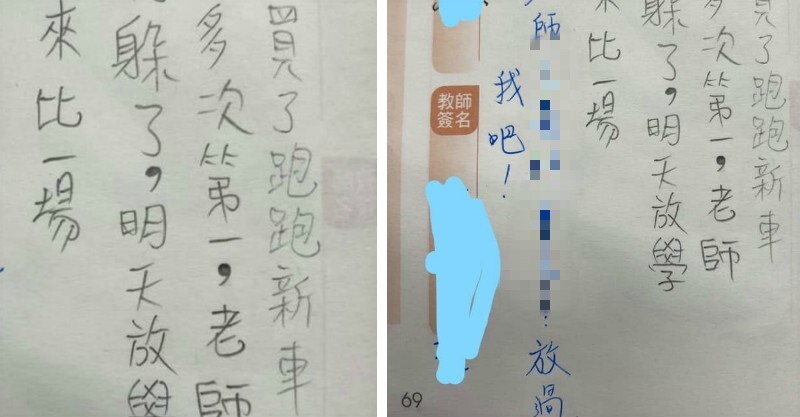 買了跑跑新車
多次第一，老師
躲了，明天放學
來比一場
了跑跑新車
次第一，老師
躲了，明天放學
來比一場
師
放過
我吧！
教師
簽名
69